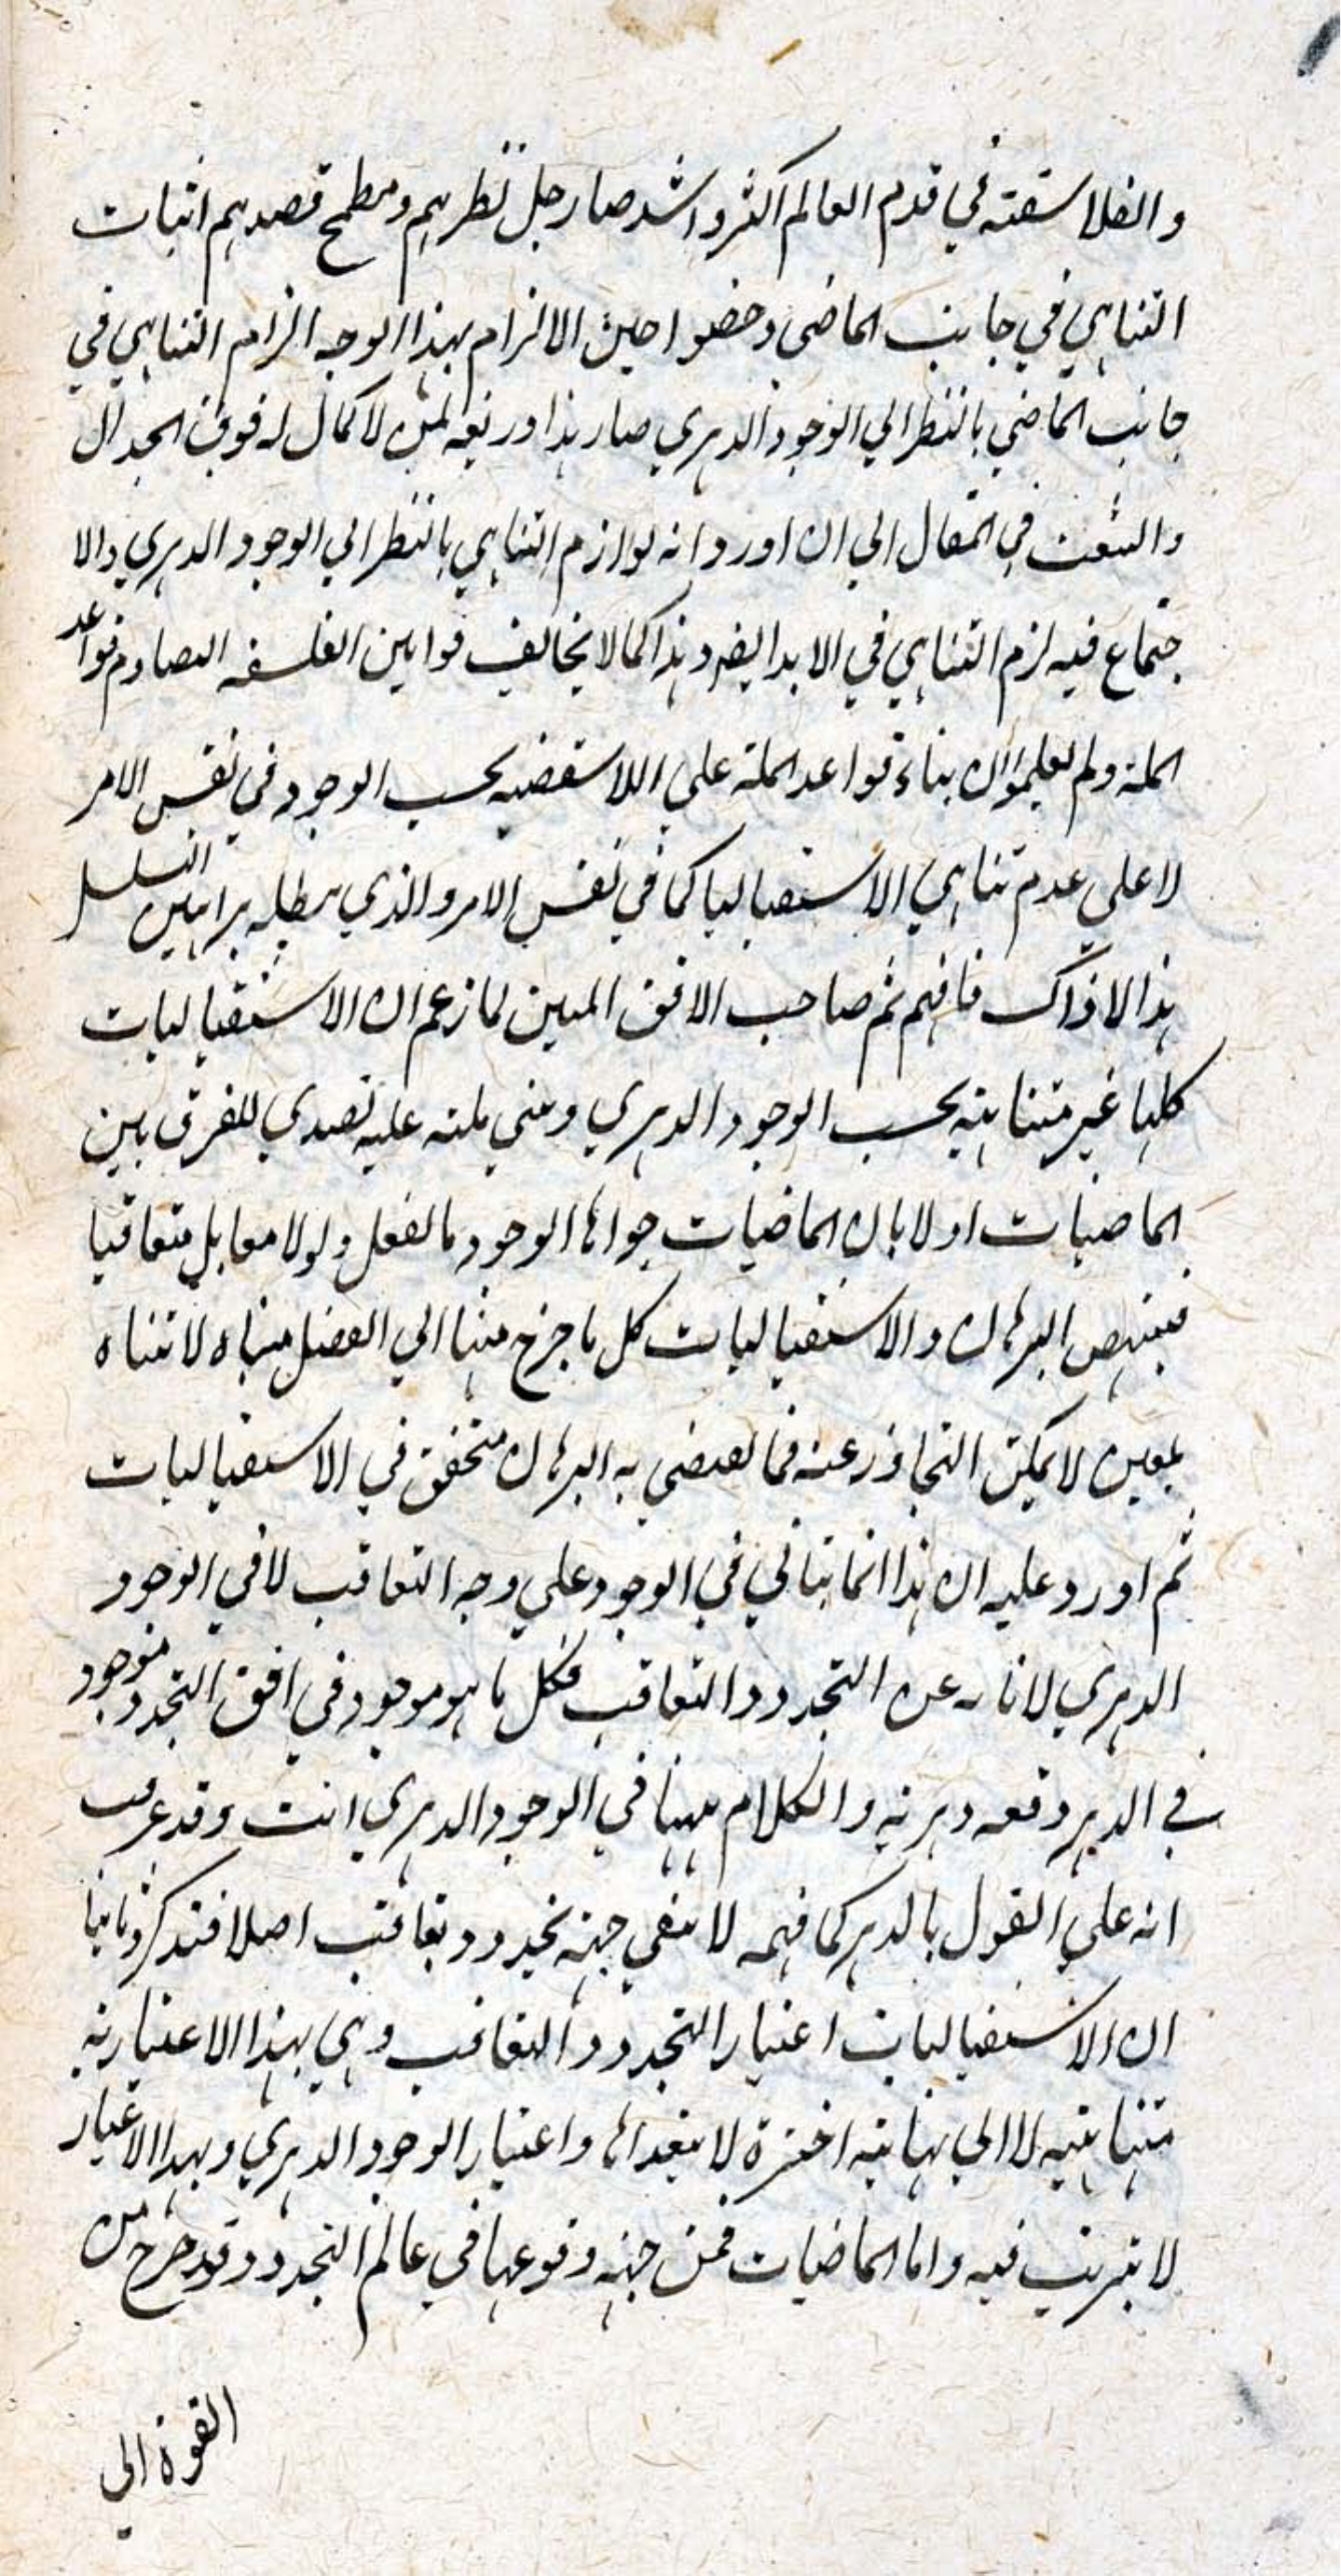 والفلاسفة في قدم العالم اكثر واشد صار جل نظرهم ومطمح قصدهم اثبات
التناهي في جانب الماضي وخضوا حين الالزام بهذا الوجه الزام التناهي في
جانب الماضي بالنظر الي الوجود الدهري صار هذا ذريعة لمن لا كمال له فوق الجدال
والتعنت في المقال الي ان اورد انه لو لزم التناهي بالنظر الي الوجود الدهري والا
جتماع فيه لزم التناهي في الابد ايضا وهذا كما لا يخالف قوانين الفلسفه يصادم قواعد
الملة ولم يعلموا ان بناء قواعد الملة علي اللاتقفيه بحسب الوجود في نفس الامر
لا علي عدم تناهي الاستقباليا كما في نفس الامر والذي يبطله براهين التسلسل
هذا لا ذاك فافهم ثم صاحب الافق المبين لما زعم ان الاستقباليات
كلها غير متناهية بحسب الوجود الدهري ومني ملته عليه تصدي للفرق بين
الماضيات اولا بان الماضيات حواها الوجود بالفعل ولو لا معا بل متعاقبا
فينهض البرهان والاستقباليات كل ما خرج منها الي الفعل متناه لا تناه
بمعين لا يمكن التجاوز عنه فما يقضي به البرهان متحقق في الاستقباليات
ثم اورد عليه ان هذا انما يتاتي في الوجود علي وجه التعاقب لا في الوجود
الدهري لاناء عن التجدد والتعاقب فكل ما هو موجود في افق التجدد موجود
في الدهر دفعه دهرية والكلام ههنا في الوجود الدهري انت وقد عرفت
انه علي القول بالدهر كما فهمه لا ينفي جهة تجدد وتعاقب اصلا فتذكر وثانيا
ان الاستقباليات اعتبار التجدد والتعاقب وهي بهذا الاعتبار ية
متناهية لا الي نهاية اخيرة لا يتعداها واعتبار الوجود الدهري وبهذا الاعتبار
لا ترتيب فيه واما الماضيات فمن جهة وقوعها في عالم التجدد وقد خرج من
القوة الي